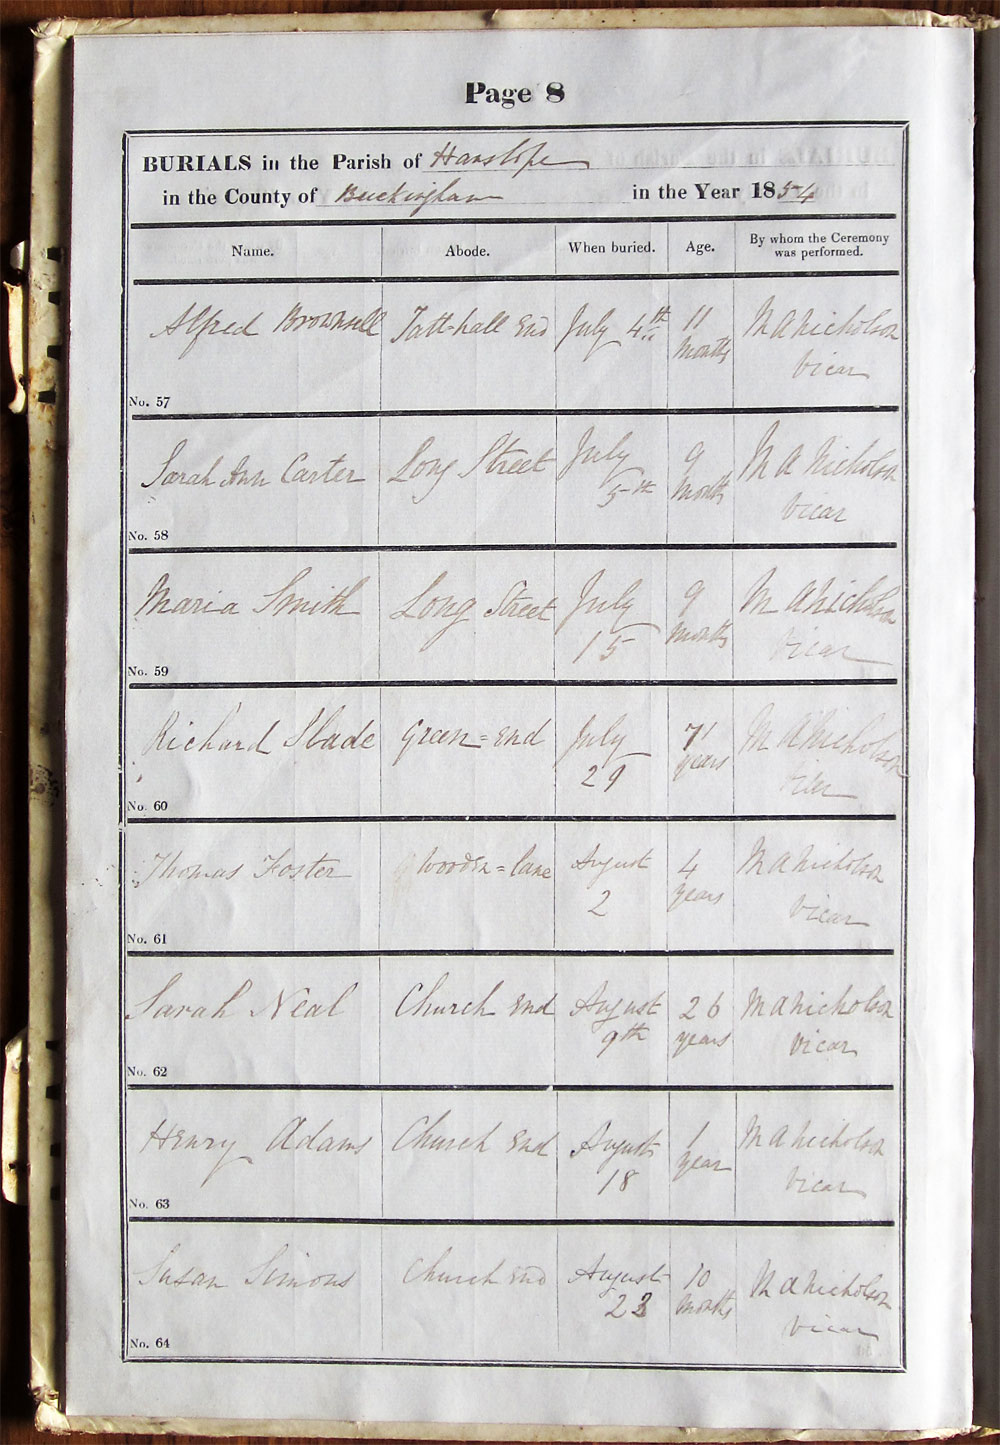 Page 8
BURIALS in the Parish of Hanslope
in the County of Buckingham in the Year 1854
Name. Abode. When buried. Age. By whom the Ceremony was performed.
Alfred Brownsell Tatt-hall End July 4th 11 months M A Nicholson Vicar
No. 57
Sarah Ann Carter Long Street July 5th 9 months M A Nicholson Vicar
No. 58
Maria Smith Long Street July 15 9 months M A Nicholson Vicar
No. 59
Richard Slade Green=End July 29 71 years M A Nicholson Vicar
No. 60
Thomas Foster Wooden=lane August 2 4 years M A Nicholson Vicar
No. 61
Sarah Neal Church End August 9th 26 years M A Nicholson Vicar
No. 62
Henry Adams Church End August 18 1 year M A Nicholson Vicar
No. 63
Susan Simons Church End August 23 10 months M A Nicholson Vicar
No. 64